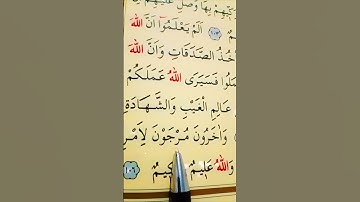 كِّيْهِمْ بِهَا وَصَلِّ عَلَيْهِمْ
١٠٣ اَلَمْ يَعْلَمُوْٓا اَنَّ اللّٰهَ
خُذُ الصَّدَقَاتِ وَاَنَّ اللّٰهَ
مَلُوا فَسَيَرَى اللّٰهُ عَمَلَكُمْ
عَالِمِ الْغَيْبِ وَالشَّهَادَةِ
وَاٰخَرُونَ مُرْجَوْنَ لِاَمْرِ
وَاللّٰهُ عَلِيمٌ حَكِيمٌ ١٠٦